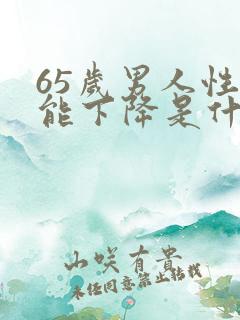 65岁男人性
能下降是什
山咲有贵
未经同意禁止转载